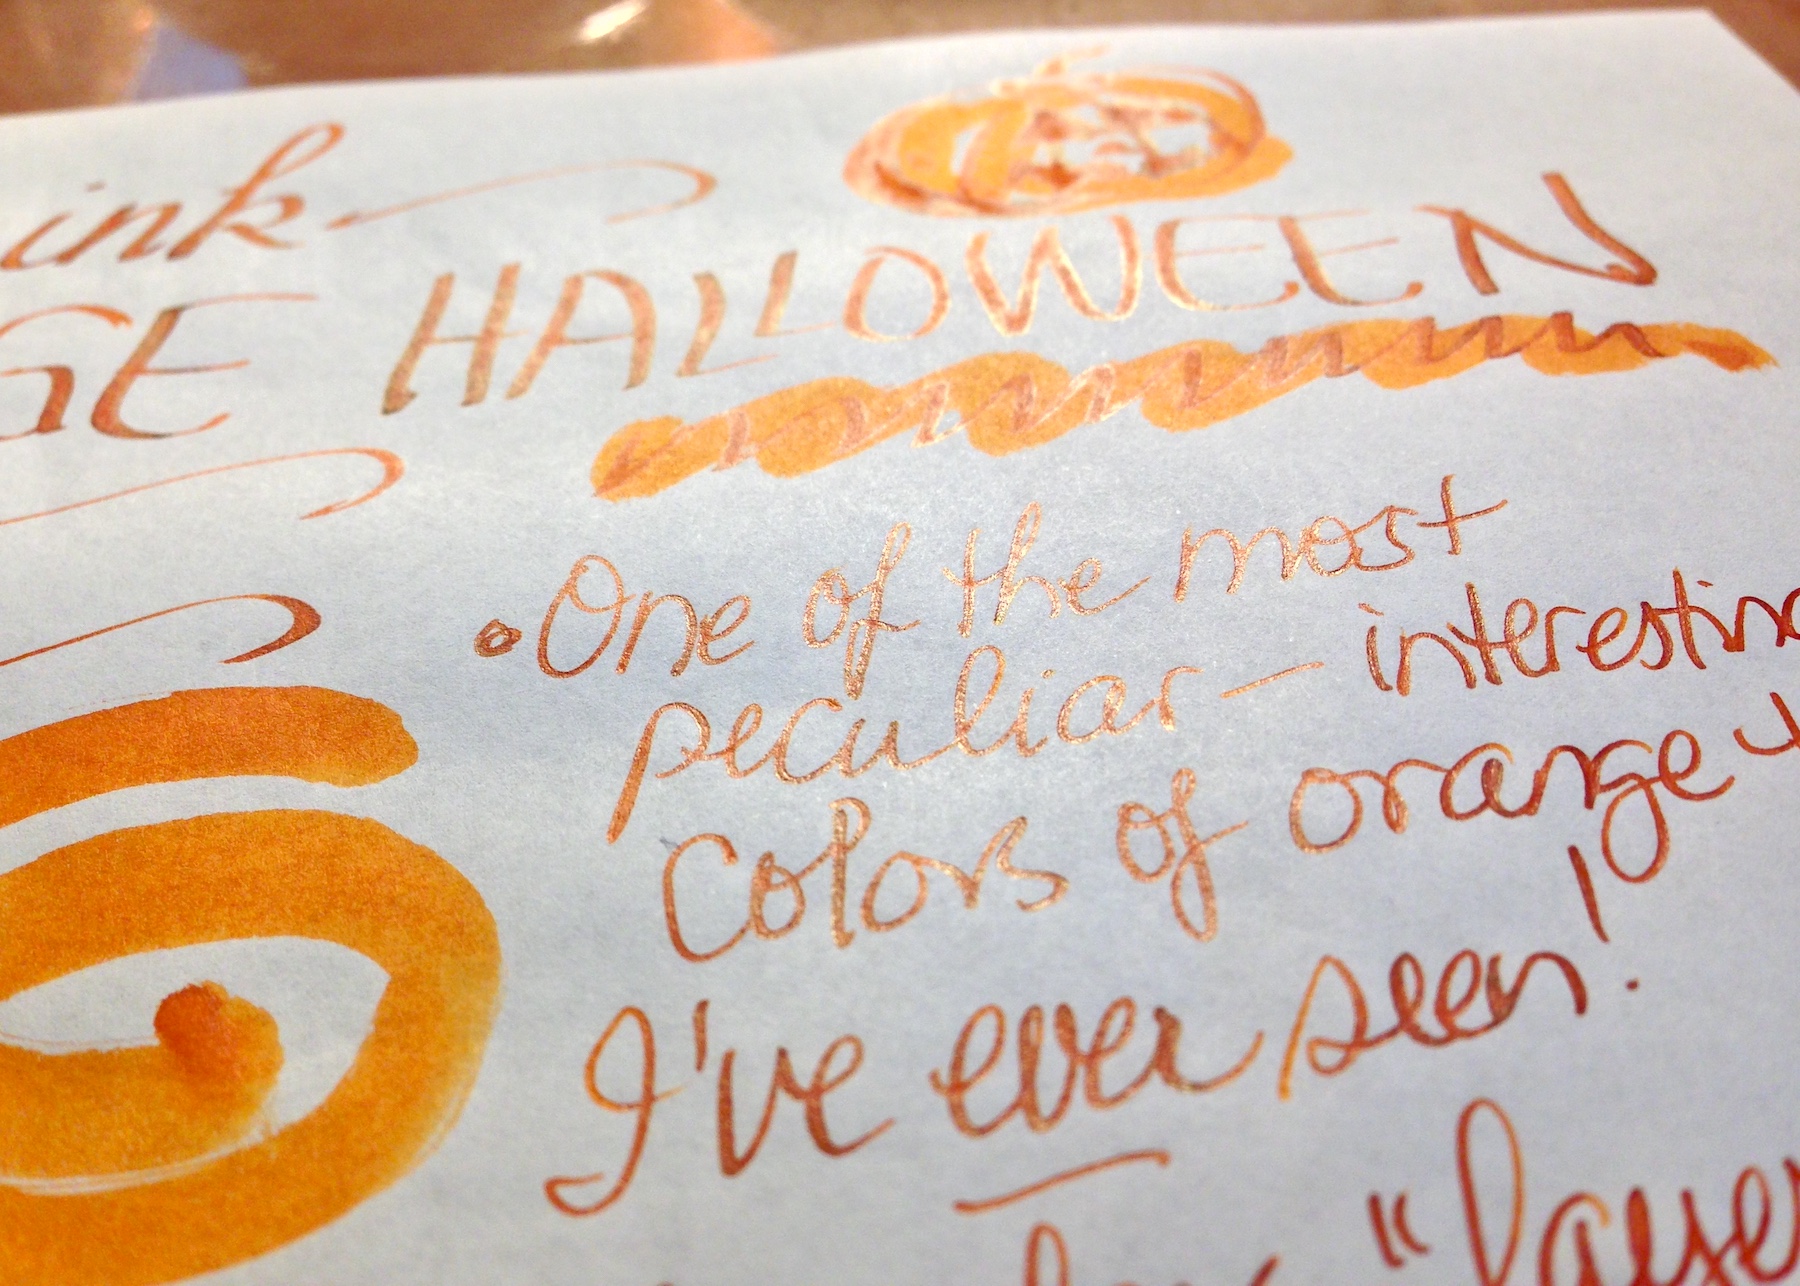 ink
GE HALLOWEEN
• One of the most
peculiar — interesting
colors of orange +
I've ever seen!
"layer